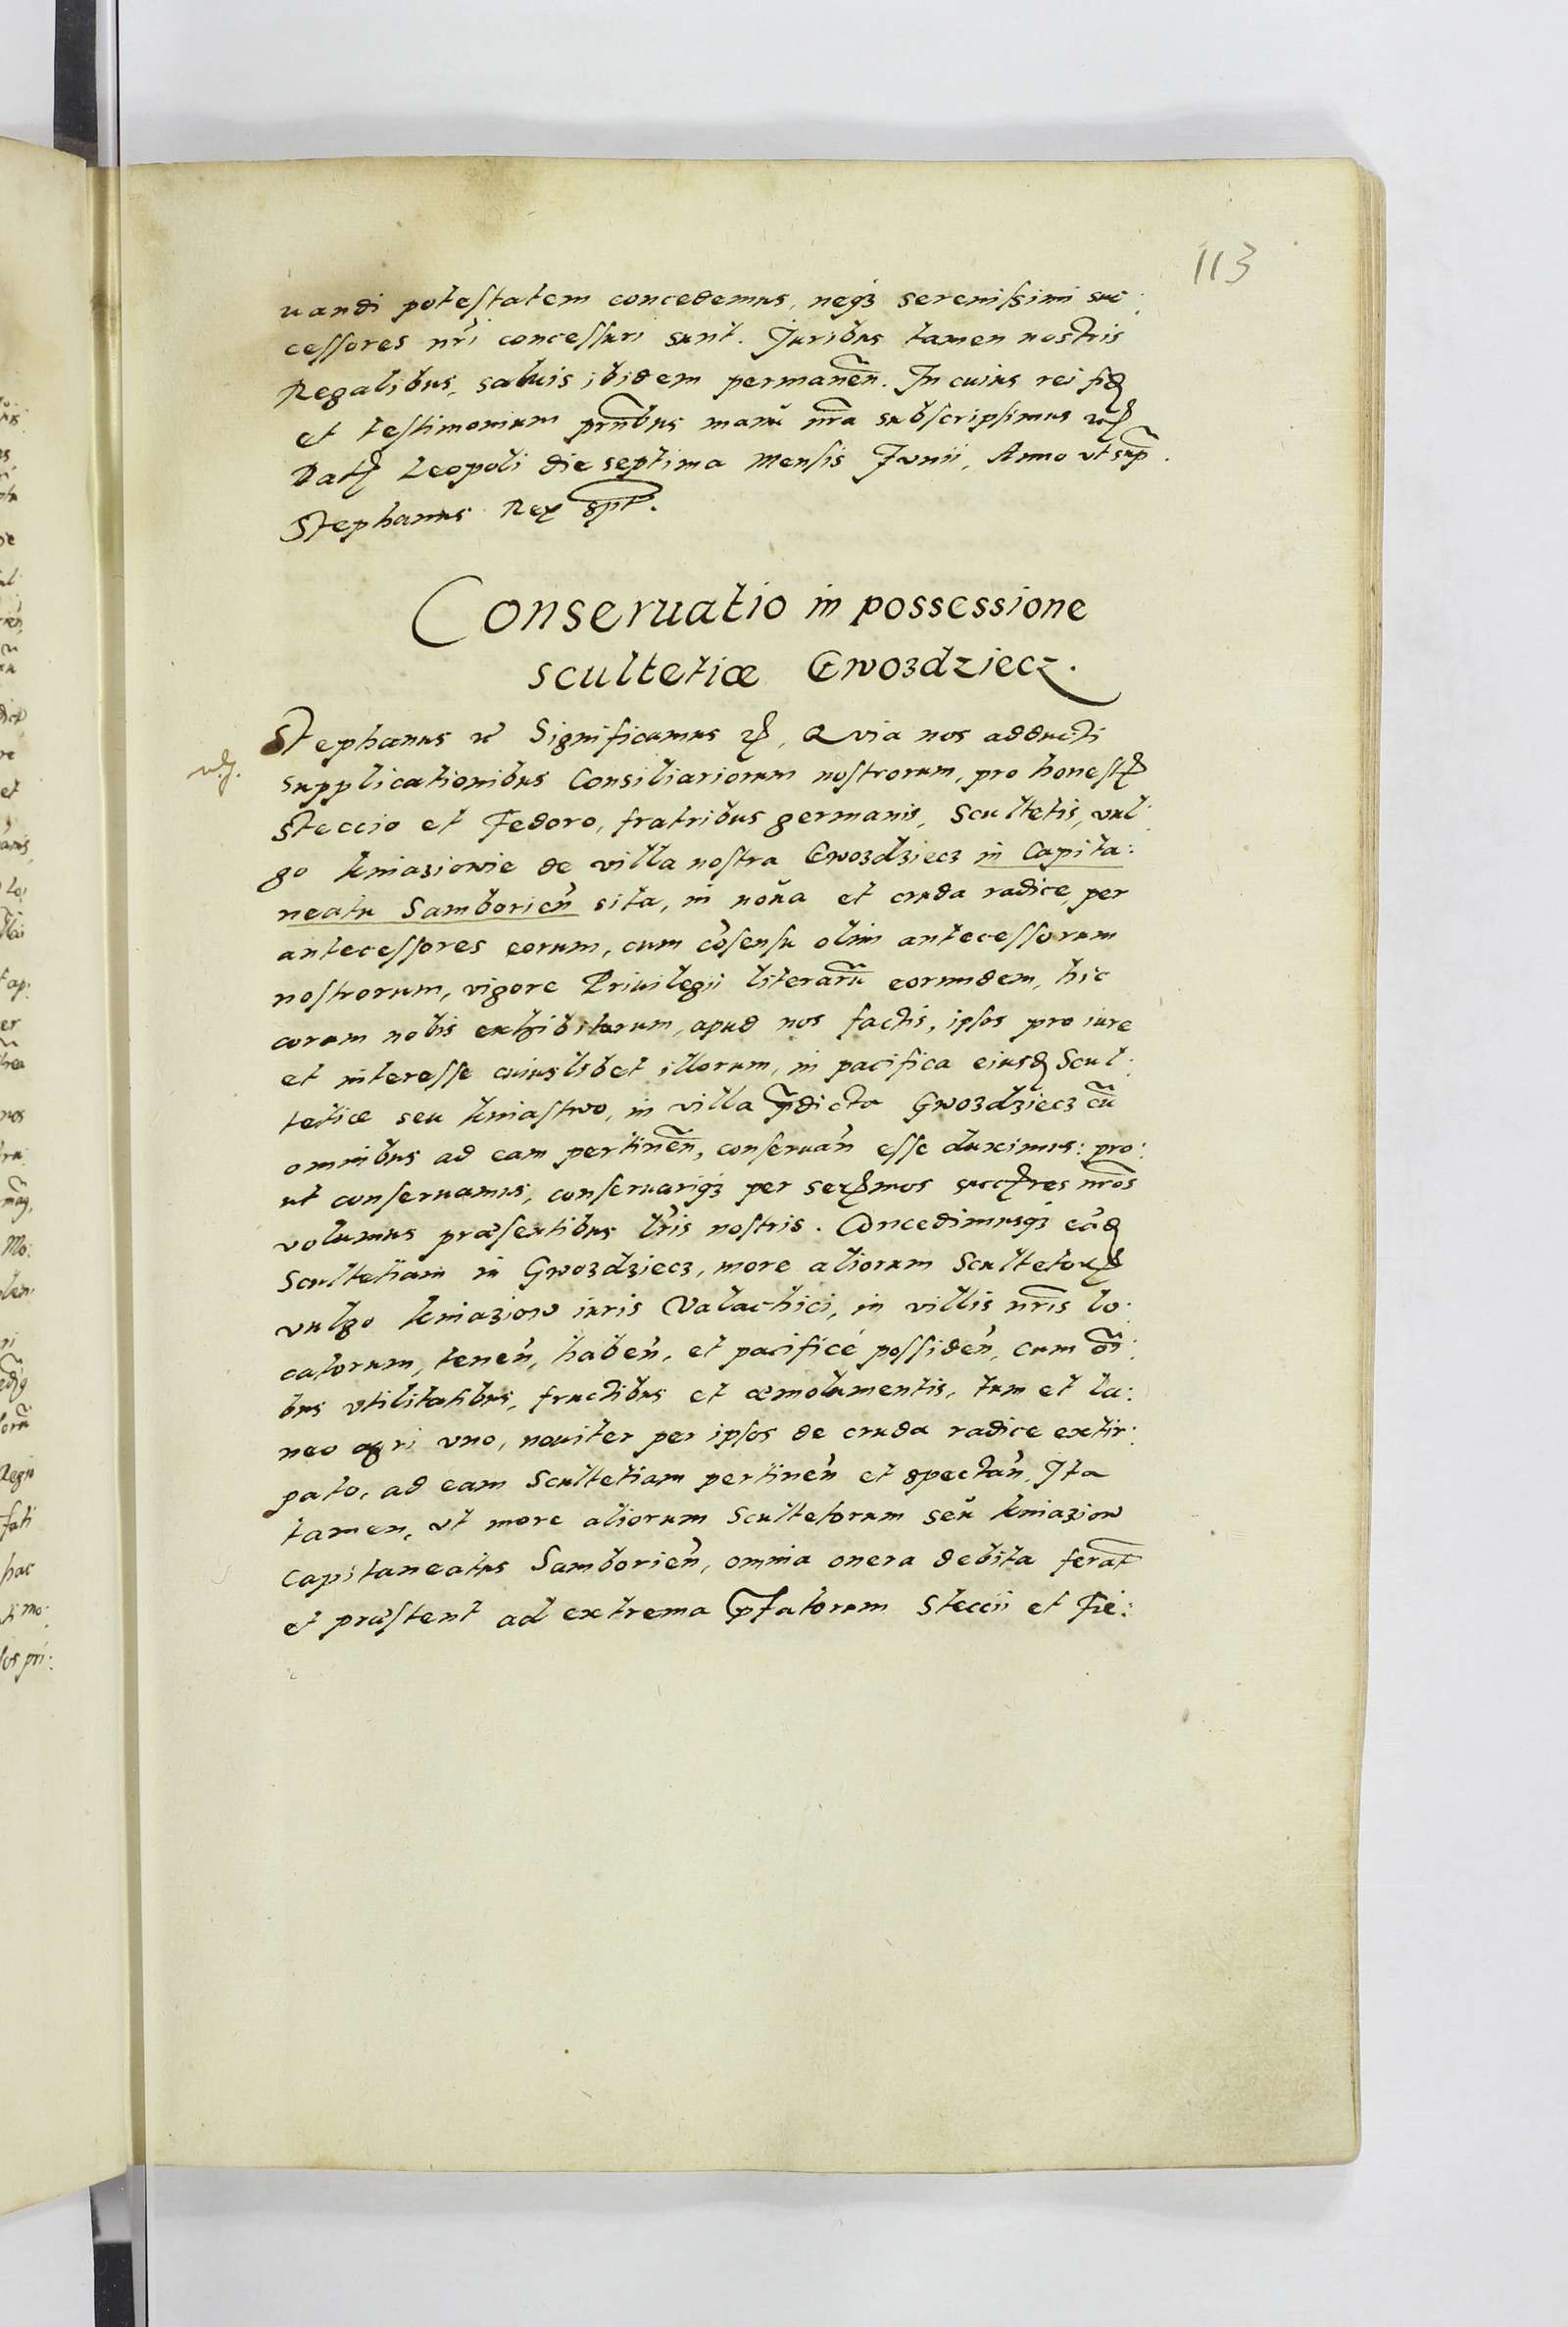 113
uandi potestatem concedemus, neq3 serenissimi suc:
cessores nri concessuri sunt. Juribus tamen nostris
Regalibus, saluis ibidem permanen. In cuius rei fid
et testimonium prntibus manu nra subscripsimus etc
Dat Leopoli die septima mensis Junii, Anno vt sup.
Stephanus Rex spt.
Conseruatio in possessione
scultetiæ Gwozdziecz.
Stephanus etc Significamus etc, Quia nos adducti
supplicationibus Consiliariorum nostrorum, pro honest
Steccio et Fedoro, fratribus germanis, Scultetis, vul:
go kniaziowie de villa nostra Gwozdziecz in Capita:
neatu Samborien sita, in noua et cruda radice, per
antecessores eorum, cum cosensu olim antecessorum
nostrorum, vigore Priuilegii literaru eorundem, hic
coram nobis exhibitarum, apud nos factis, ipsos pro iure
et interesse cuiuslibet illorum, in pacifica eiusd Scul:
tetiæ seu kniastwo, in villa pdicta Gwozdziecz cu
omnibus ad eam pertinen, conseruan esse duximus: pro:
ut conseruamus, conseruariq3 per sermos succres nros
volumus præsentibus lris nostris. Concedimusq3 ead
Scultetiam in Gwozdziecz, more aliorum Scultetor
vulgo kniaziow iuris Valachici, in villis nris lo:
catorum, tenen, haben, et pacificé possiden, cum oi:
bus vtilitatibus, fructibus et æmolumentis, tum et la:
neo agri vno, nouiter per ipsos de cruda radice extir:
pato, ad eam Scultetiam pertinen et spectan. Ita
tamen, vt more aliorum Scultetorum seu kniaziow
Capitaneatus Samborien, omnia onera debita ferat
et præstent ad extrema pfatorum Steccii et Fie: